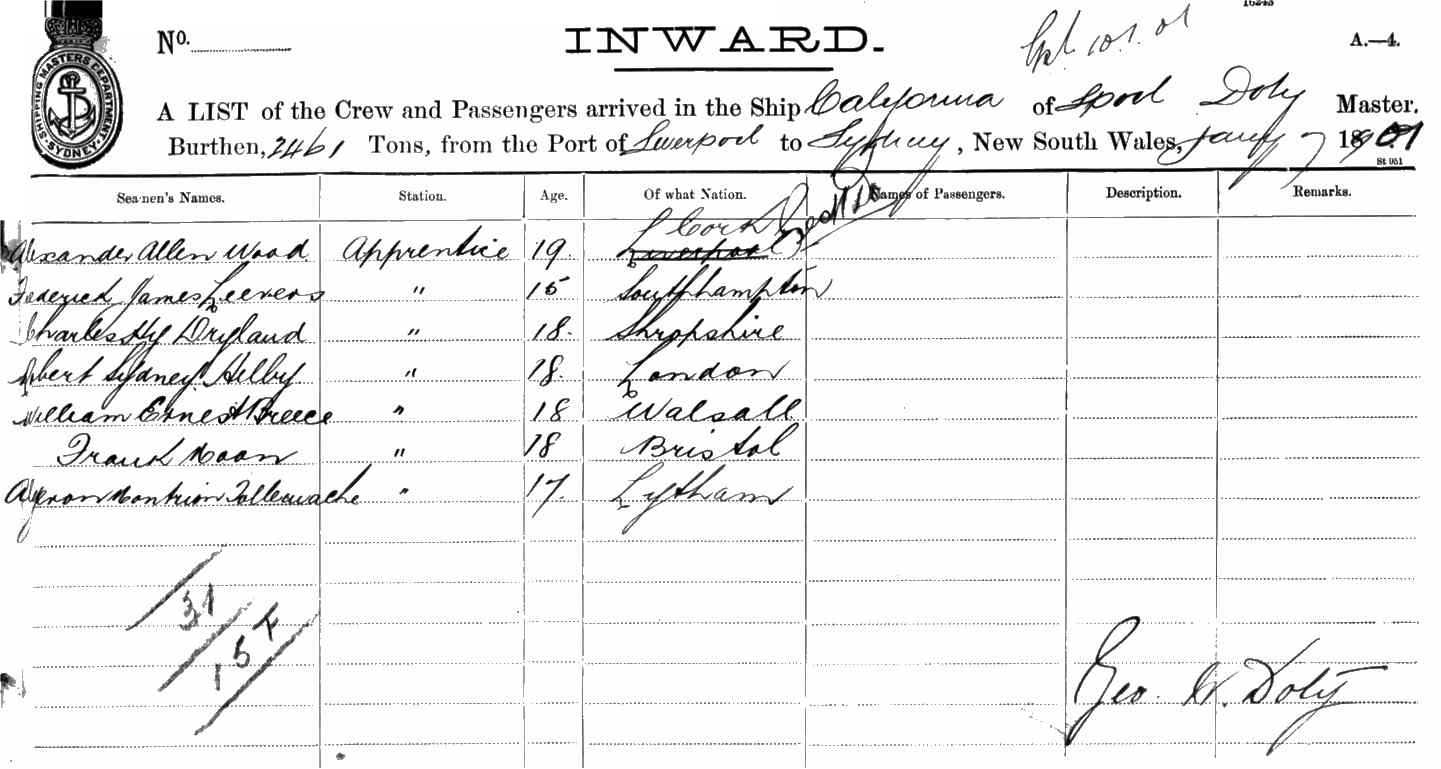 16243
No.
INWARD.
A.—4.
SHIPPING MASTERS DEPARTMENT
SYDNEY
A LIST of the Crew and Passengers arrived in the Ship California of Lpool Doty Master.
Burthen, 2461 Tons, from the Port of Liverpool to Sydney, New South Wales, Jany 7 1901
St 951
Seamen's Names. Station. Age. Of what Nation. Names of Passengers. Description. Remarks.
Cork
Alexander Allen Wood Apprentice 19. Liverpool Geo W D
Frederick James Leevers " 15 Southhampton
Charles Hy Dryland " 18. Shropshire
Sydney Hilby " 18. London
William Ernest Breece " 18 Walsall
Frank Moon " 18 Bristol
Algernon Montrion Tollemache " 17. Lytham
31
15 F
Geo. W. Doty